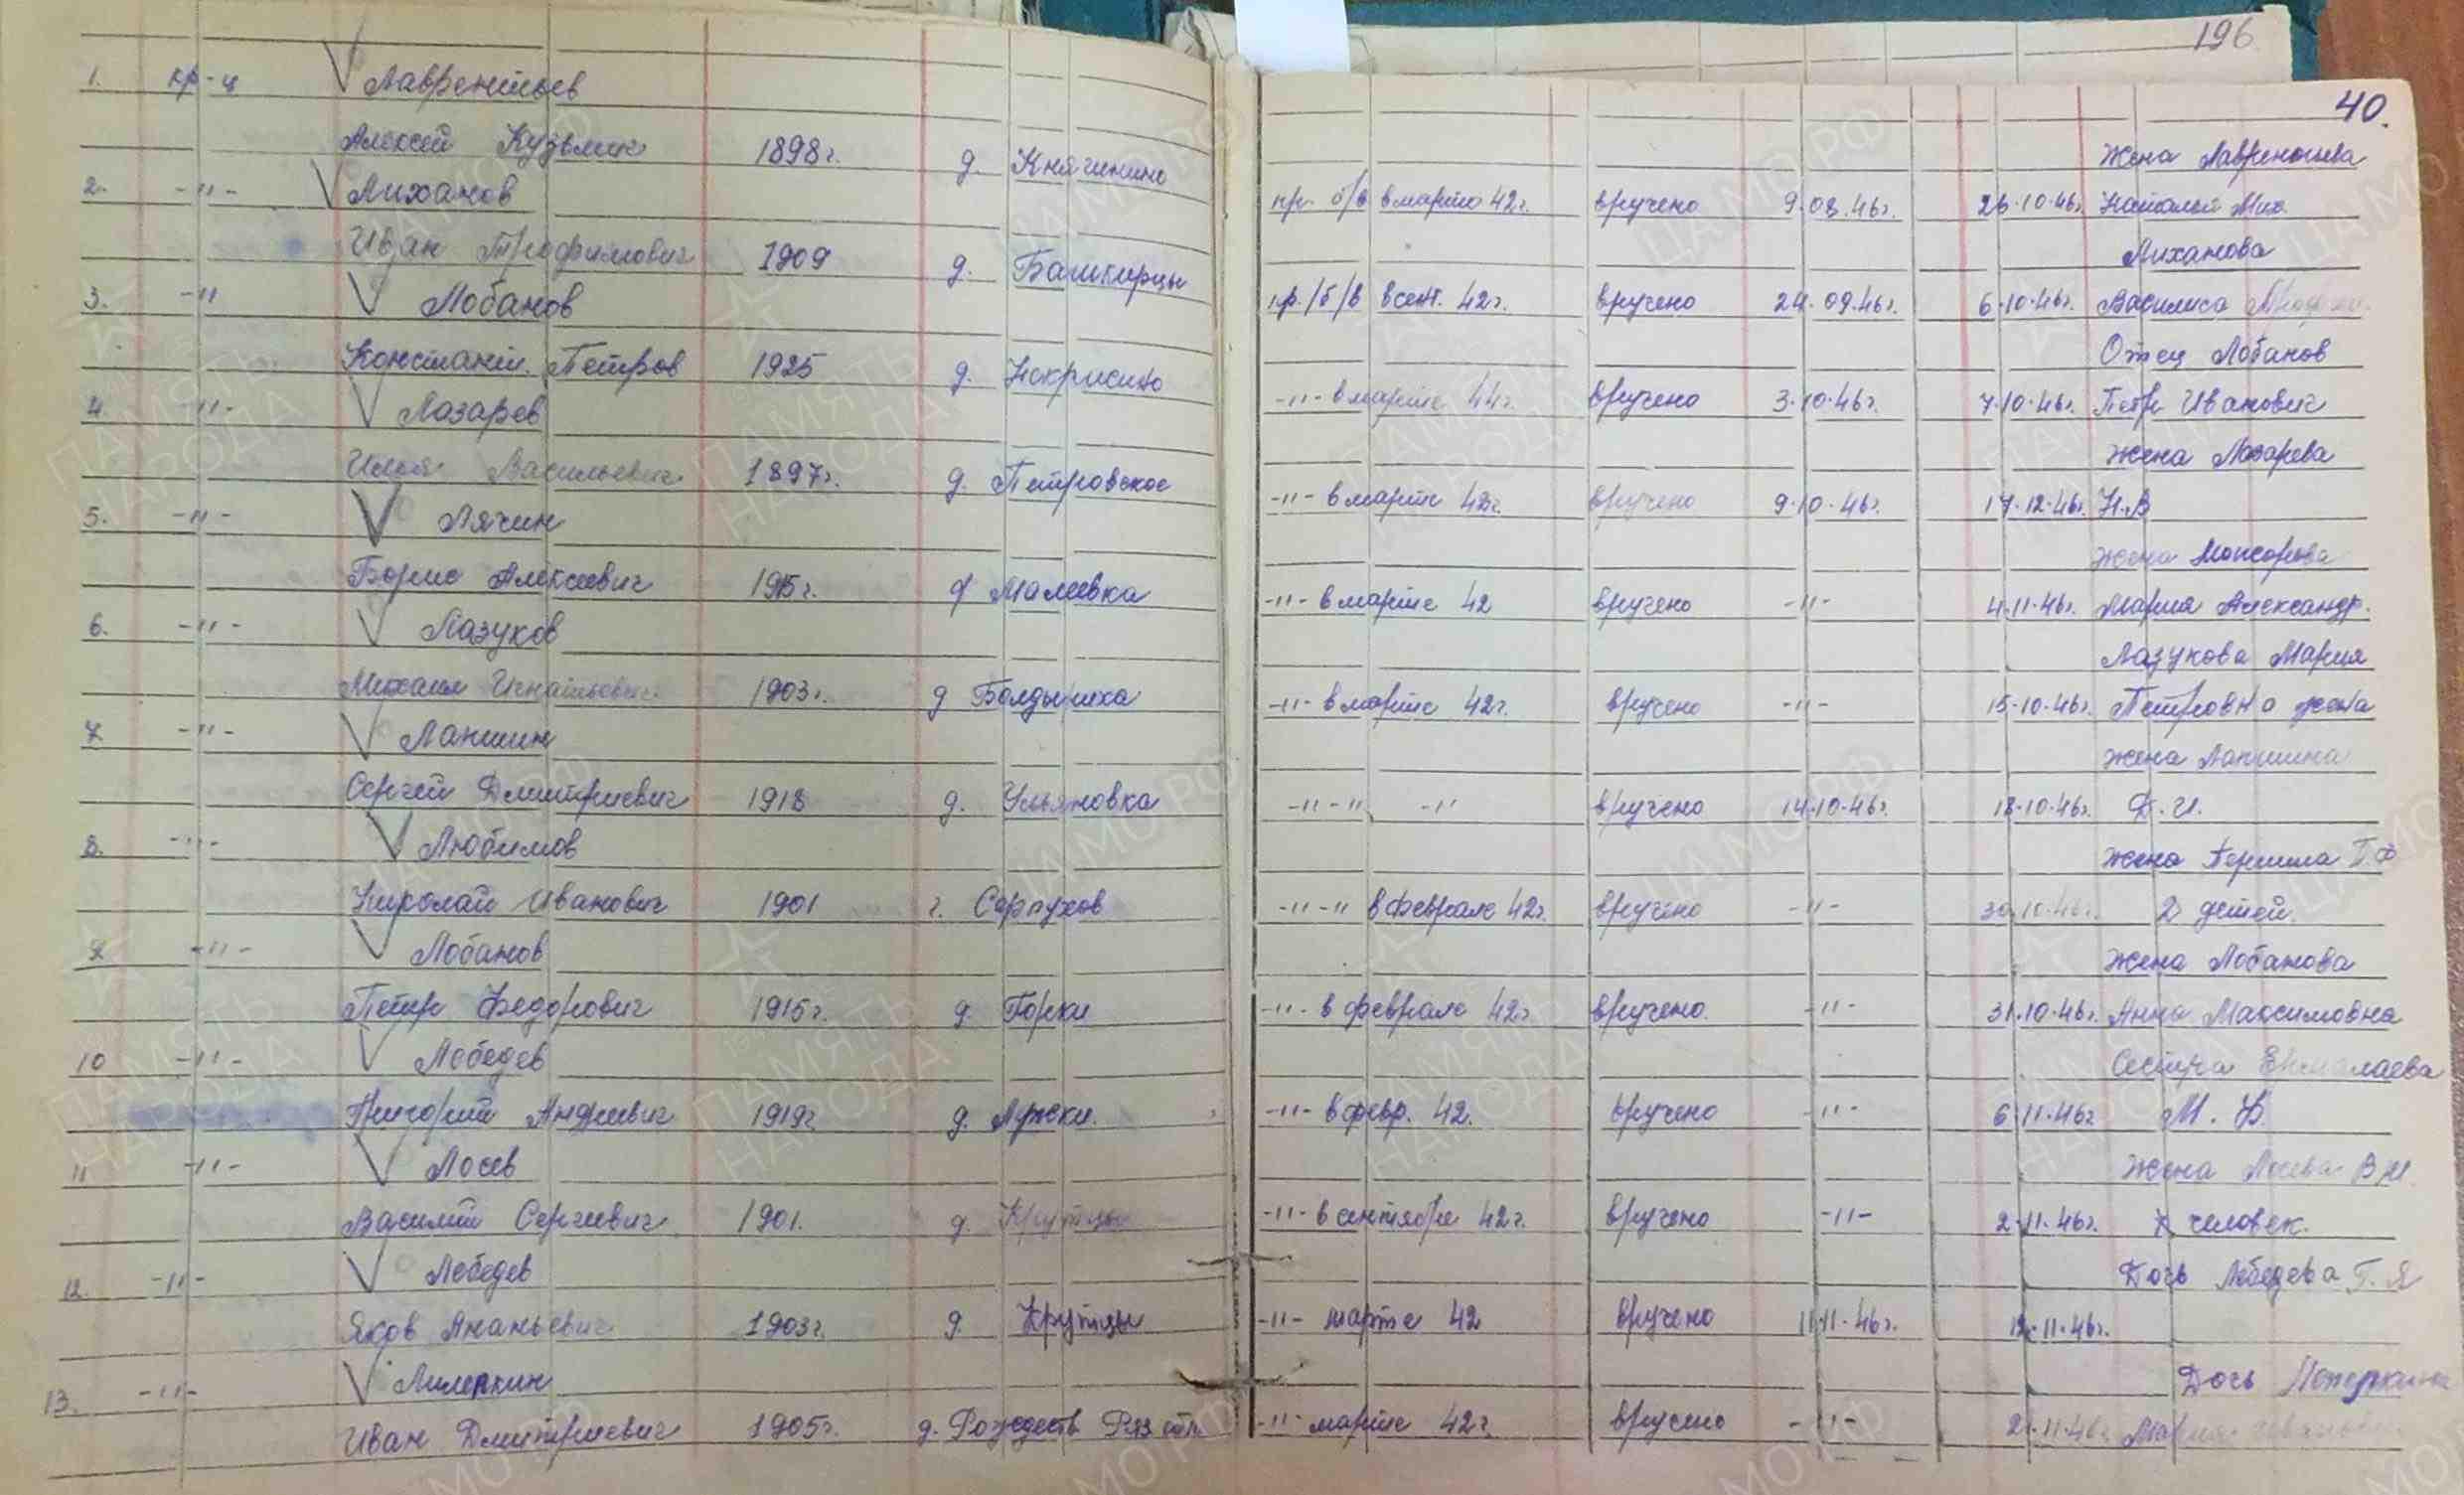 196
40.
1. кр-ц Лаврентьев
Алексей Кузьмич 1898г. д. Княгинино
Жена Лаврентьева
2. -"- Лиханов
пр. б/в в марте 42г. вручено 9.08.46г. 26.10.46г. Наталья Мих.
Иван Трофимович 1909 д. Башкирцы
Лиханова
3. -"- Лобанов
пр./б/в в сент. 42г. вручено 24.09.46г. 6.10.46г. Василиса
Констант. Петров 1925 д. Искрисино
Отец Лобанов
4. -"- Лазарев
-"- в марте 44г. вручено 3.10.46г. 7.10.46г. Петр Иванович
Илья Васильевич 1897г. д. Петровское
Жена Лазарева
5. -"- Лячин
-"- в марте 42г. вручено 9.10.46г. 17.12.46г. Н.В
Борис Алексеевич 1915г. д Малеевка
Жена
6. -"- Лазуков
-"- в марте 42 вручено -"- 4.11.46г. Мария Александр.
Михаил Игнатьевич 1903г. д Болдыниха
Лазукова Мария
7. -"- Лапшин
-"- в марте 42г. вручено -"- 15.10.46г. Петровна жена
Сергей Дмитриевич 1918 д. Ульяновка
Жена Лапшина
8. -"- Любимов
-"-"- -"- вручено 14.10.46г. 18.10.46г. Д.И.
Николай Иванович 1901 г. Серпухов
Жена
9. -"- Лобанов
-"-" в феврале 42г. вручено -"- 30.10.46г. 2 детей.
Петр Федорович 1915г. д. Горки
Жена Лобанова
10 -"- Лебедев
-"- в феврале 42г. вручено. -"- 31.10.46г. Анна Максимовна
Григорий Андреевич 1919г. д. Лужки.
Сестра
11 -"- Лосев
-"- в февр. 42. вручено -"- 6.11.46г М. Ф.
Василий Сергеевич 1901. д. Крутцы
Жена Лосева В.И.
12. -"- Лебедев
-"- в сентябре 42г. вручено -"- 2.11.46г. человек.
Яков Ананьевич 1903г. д. Крутцы
Дочь Лебедева Г. Я
-"- марте 42 вручено 11.11.46г. 12.11.46г.
13. -"- Лилеркин
Дочь
Иван Дмитриевич 1905г. д. Рождеств
-"- марте 42г. вручено -"- 21.11.46г. Мария
ПАМЯТЬ НАРОДА
ЦАМО РФ